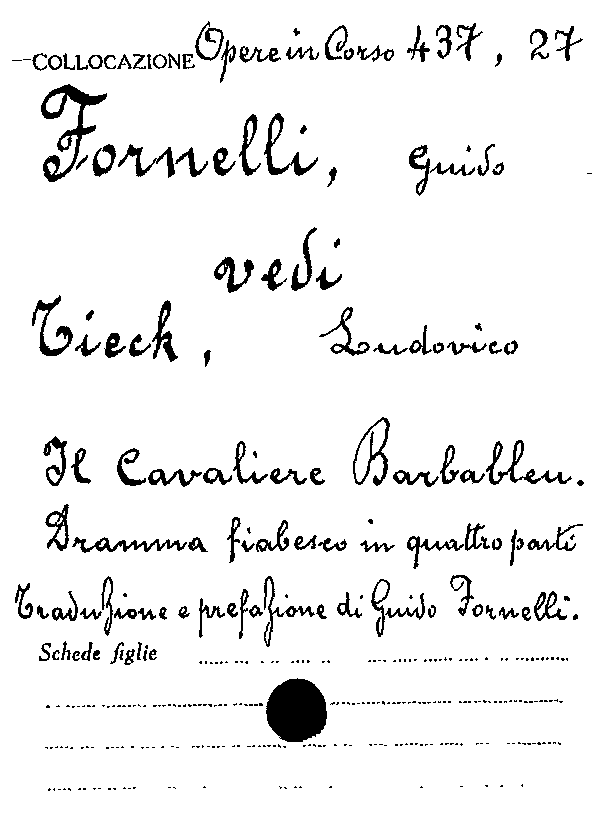 COLLOCAZIONE Opere in Corso 437, 27
Fornelli, Guido
vedi
Tieck, Ludovico
Il Cavaliere Barbableu.
Dramma fiabesco in quattro parti
Traduzione e prefazione di Guido Fornelli.
Schede figlie